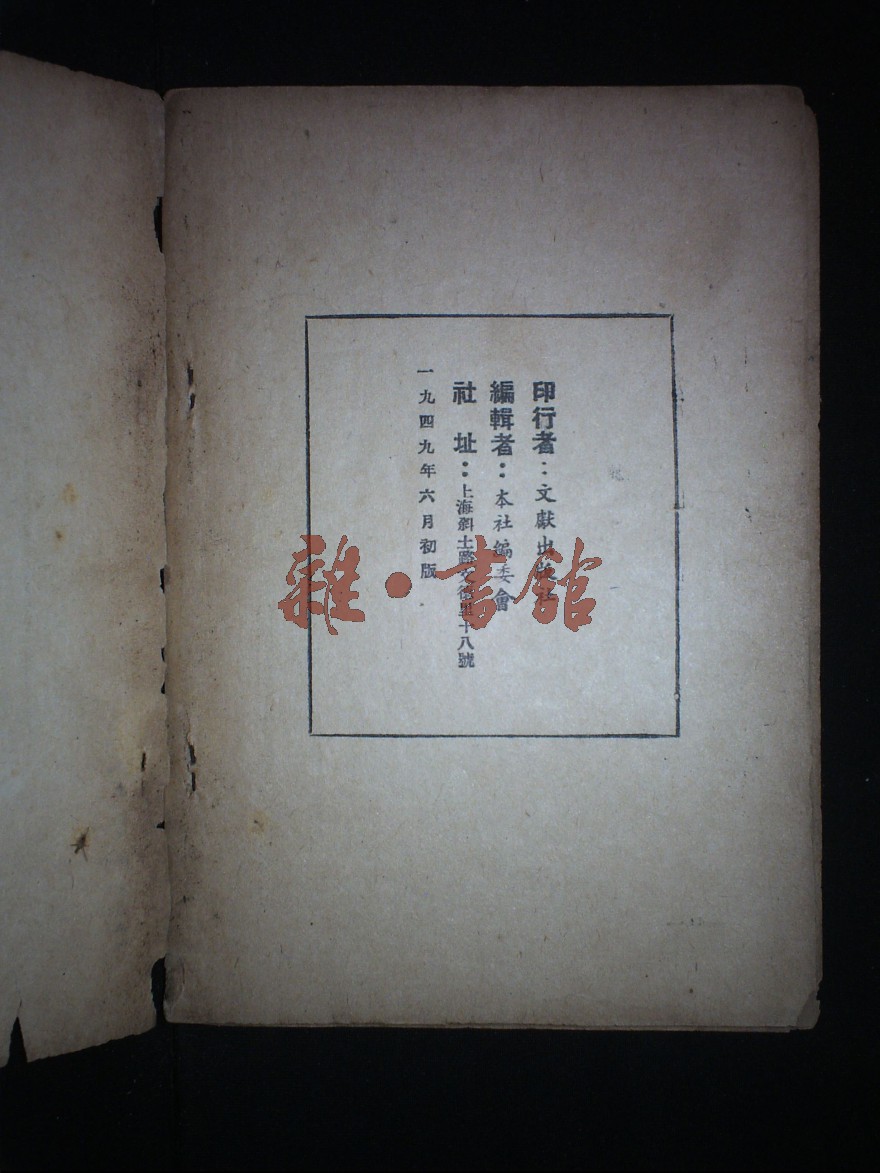 印行者：文獻出版社
編輯者：本社編委會
社 址：上海斜土路文德里十八號
一九四九年六月初版
雜·書館